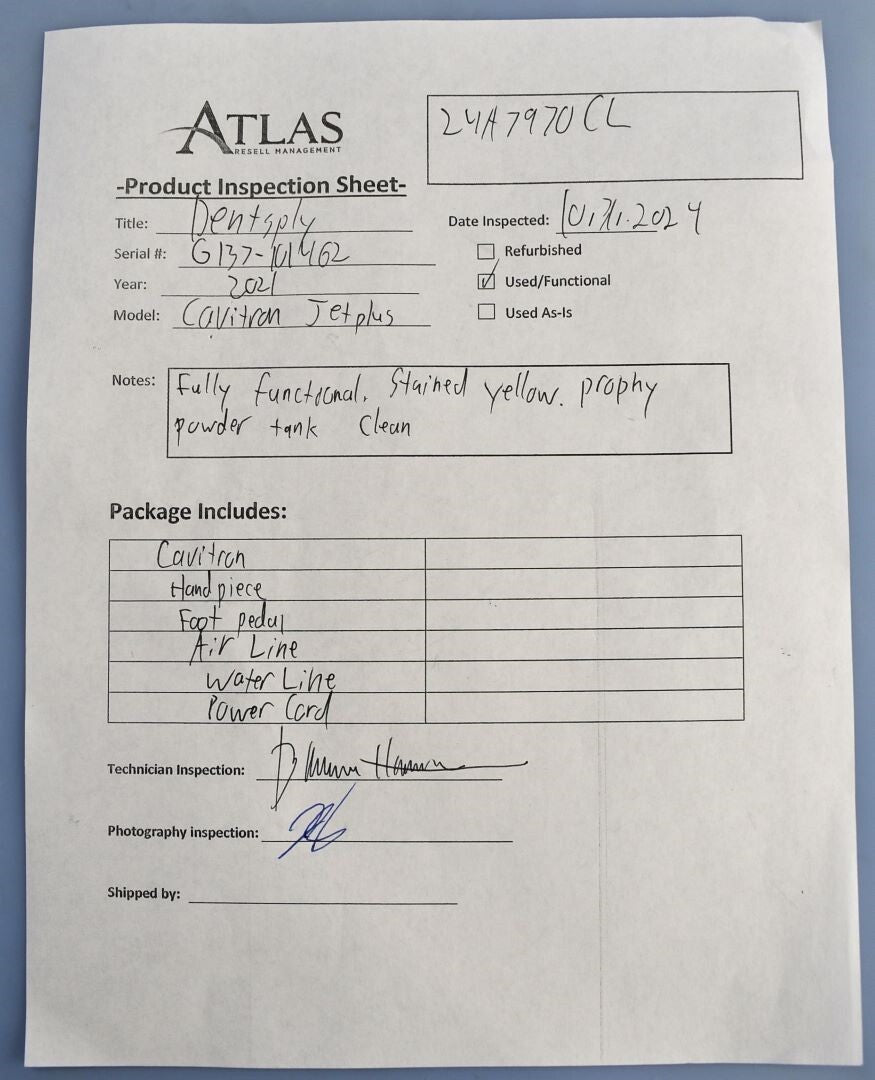 ATLAS
RESELL MANAGEMENT
24A7970CL
-Product Inspection Sheet-
Title: Dentsply
Date Inspected: 2024
Serial #: G137-101462
Refurbished
Year: 2021
Used/Functional
Model: Cavitron Jetplus
Used As-Is
Notes: Fully functional. Stained yellow. prophy
powder tank Clean
Package Includes:
Cavitron
Handpiece
Foot pedal
Air Line
Water Line
Power Cord
Technician Inspection:
Photography inspection:
Shipped by: